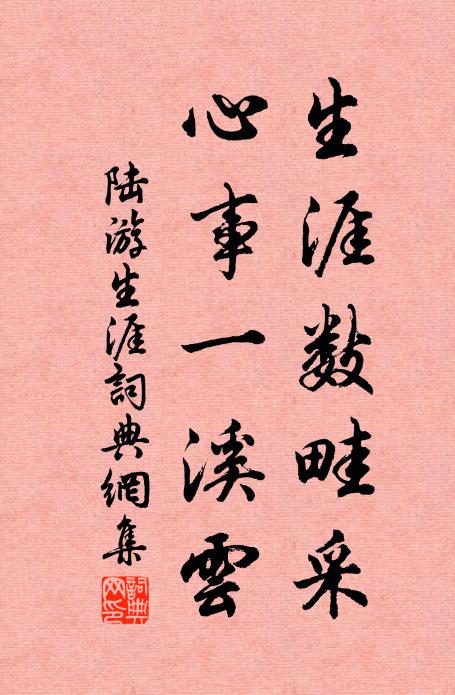 生涯数畦采
心事一溪雲
陆游生涯詞典網集
詞典網印